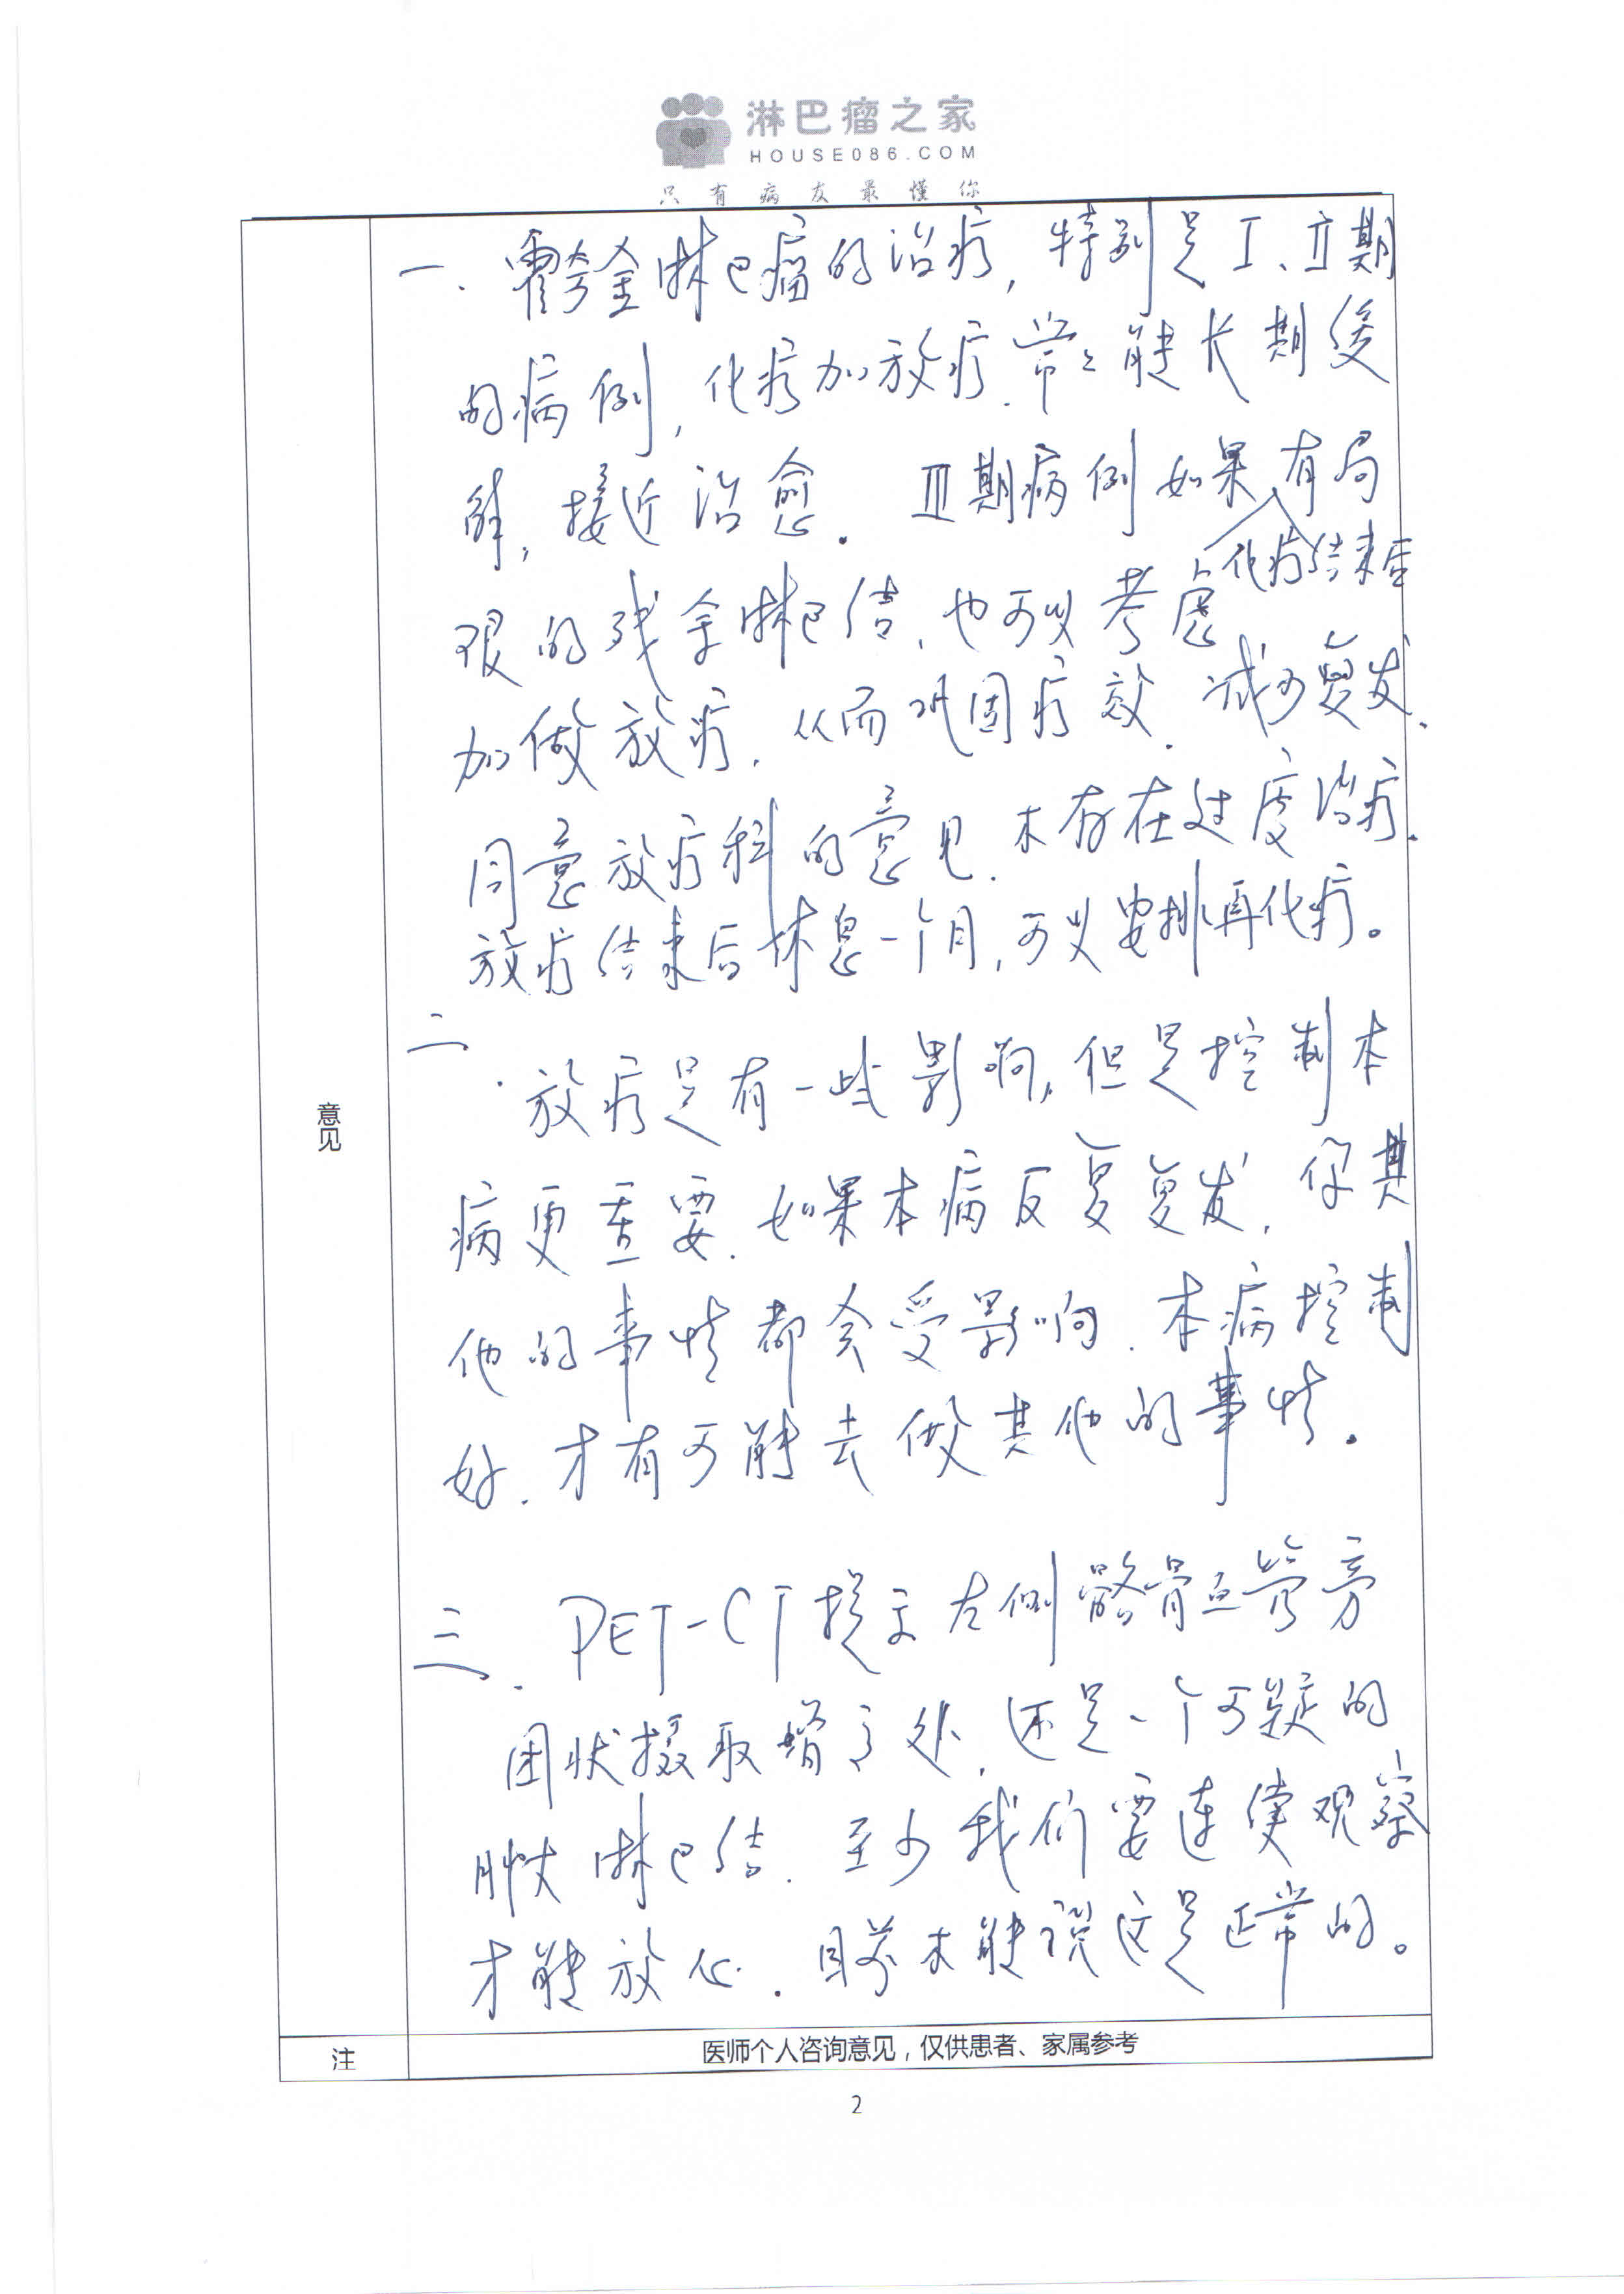 淋巴瘤之家
HOUSE086.COM
只有病友最懂你
一、霍奇金淋巴瘤的治疗,特别是Ⅰ、Ⅱ期
的病例,化疗加放疗,常常能长期缓
解,接近治愈。Ⅲ期病例如果有局
化疗结束后
限的残余淋巴结,也可以考虑
加做放疗,从而巩固疗效,减少复发,
同意放疗科的意见,不存在过度治疗,
放疗结束后休息一个月,可以安排再化疗。
二、放疗是有一些影响,但是控制本
病更重要,如果本病反复复发,你其
他的事情都会受影响,本病控制
好,才有可能去做其他的事情。
三、PET-CT提示左侧髂骨血管旁
团状摄取增高处,还是一个可疑的
肿大淋巴结,至少我们要连续观察
才能放心,目前不能说这是正常的。
意见
注
医师个人咨询意见,仅供患者、家属参考
2